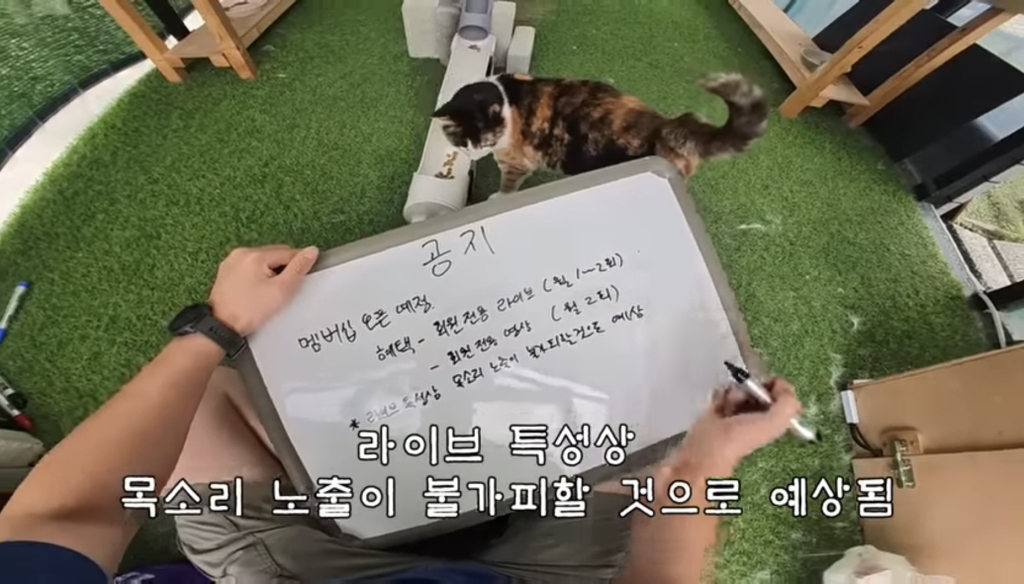 공지
멤버십 오픈 예정
혜택 - 회원 전용 라이브 (월 1~2회)
- 회원 전용 영상 (월 2회)
* 라이브 특성상 목소리 노출이 불가피할 것으로 예상
라이브 특성상
목소리 노출이 불가피할 것으로 예상됨